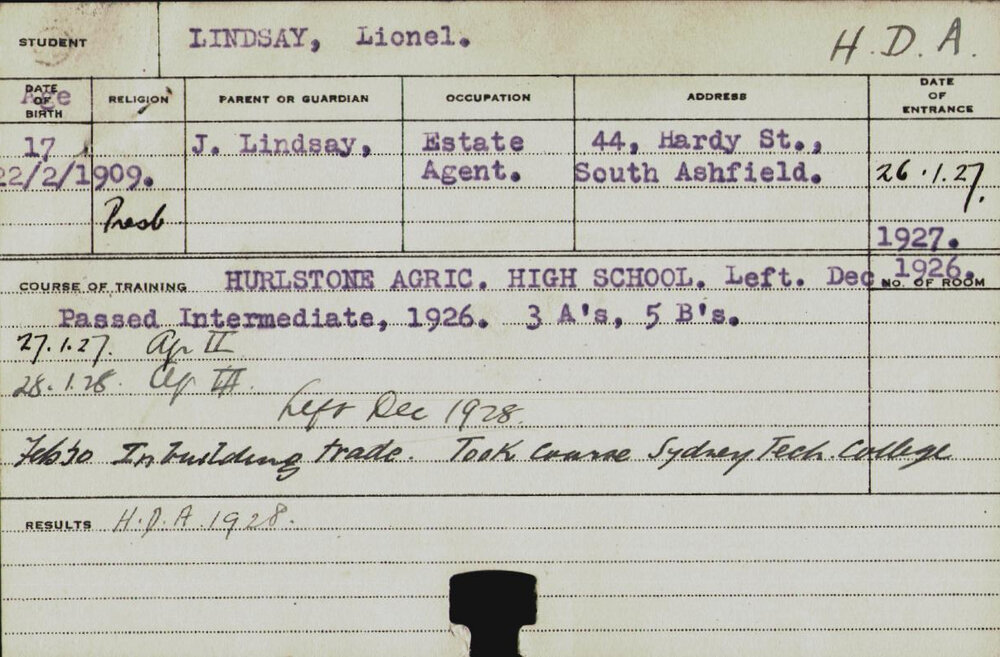 STUDENT LINDSAY, Lionel. H.D.A.
DATE OF BIRTH Age RELIGION PARENT OR GUARDIAN OCCUPATION ADDRESS DATE OF ENTRANCE
17 J. Lindsay, Estate 44, Hardy St.,
22/2/1909. Agent. South Ashfield. 26.1.27.
Presb
1927.
COURSE OF TRAINING HURLSTONE AGRIC. HIGH SCHOOL. Left. Dec 1926. NO. OF ROOM
Passed Intermediate, 1926. 3 A's, 5 B's.
27.1.27. Ag II
28.1.28. Ag III.
Left Dec 1928.
Feb '30 In building trade. Took course Sydney Tech. College
RESULTS H.D.A. 1928.